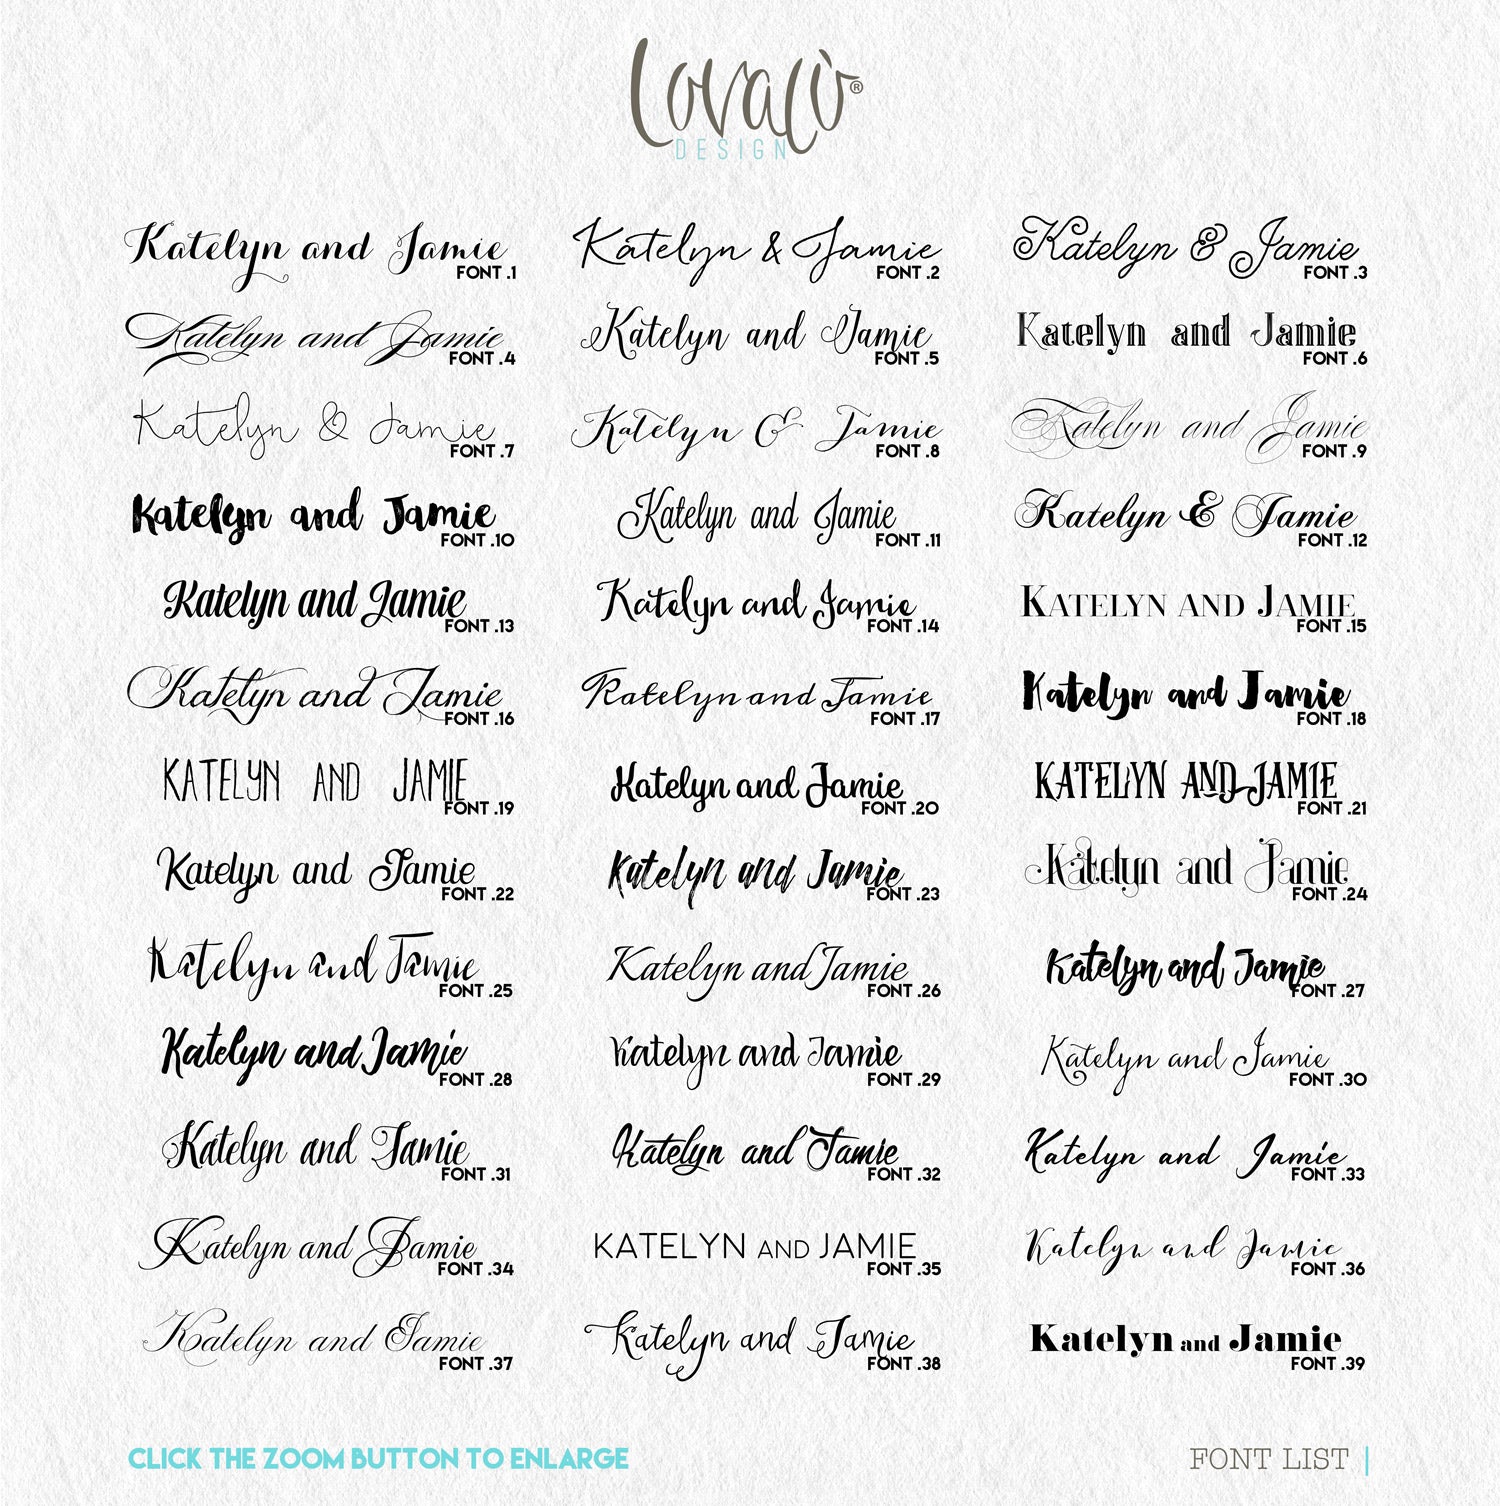 Lovalù®
DESIGN
Katelyn and Jamie
FONT .1
Katelyn & Jamie
FONT .2
Katelyn & Jamie
FONT .3
Katelyn and Jamie
FONT .4
Katelyn and Jamie
FONT .5
Katelyn and Jamie
FONT .6
Katelyn & Jamie
FONT .7
Katelyn & Jamie
FONT .8
Katelyn and Jamie
FONT .9
Katelyn and Jamie
FONT .10
Katelyn and Jamie
FONT .11
Katelyn & Jamie
FONT .12
Katelyn and Jamie
FONT .13
Katelyn and Jamie
FONT .14
KATELYN AND JAMIE
FONT .15
Katelyn and Jamie
FONT .16
Katelyn and Jamie
FONT .17
Katelyn and Jamie
FONT .18
KATELYN AND JAMIE
FONT .19
Katelyn and Jamie
FONT .20
KATELYN AND JAMIE
FONT .21
Katelyn and Jamie
FONT .22
Katelyn and Jamie
FONT .23
Katelyn and Jamie
FONT .24
Katelyn and Jamie
FONT .25
Katelyn and Jamie
FONT .26
Katelyn and Jamie
FONT .27
Katelyn and Jamie
FONT .28
Katelyn and Jamie
FONT .29
Katelyn and Jamie
FONT .30
Katelyn and Jamie
FONT .31
Katelyn and Jamie
FONT .32
Katelyn and Jamie
FONT .33
Katelyn and Jamie
FONT .34
KATELYN AND JAMIE
FONT .35
Katelyn and Jamie
FONT .36
Katelyn and Jamie
FONT .37
Katelyn and Jamie
FONT .38
Katelyn and Jamie
FONT .39
CLICK THE ZOOM BUTTON TO ENLARGE
FONT LIST |